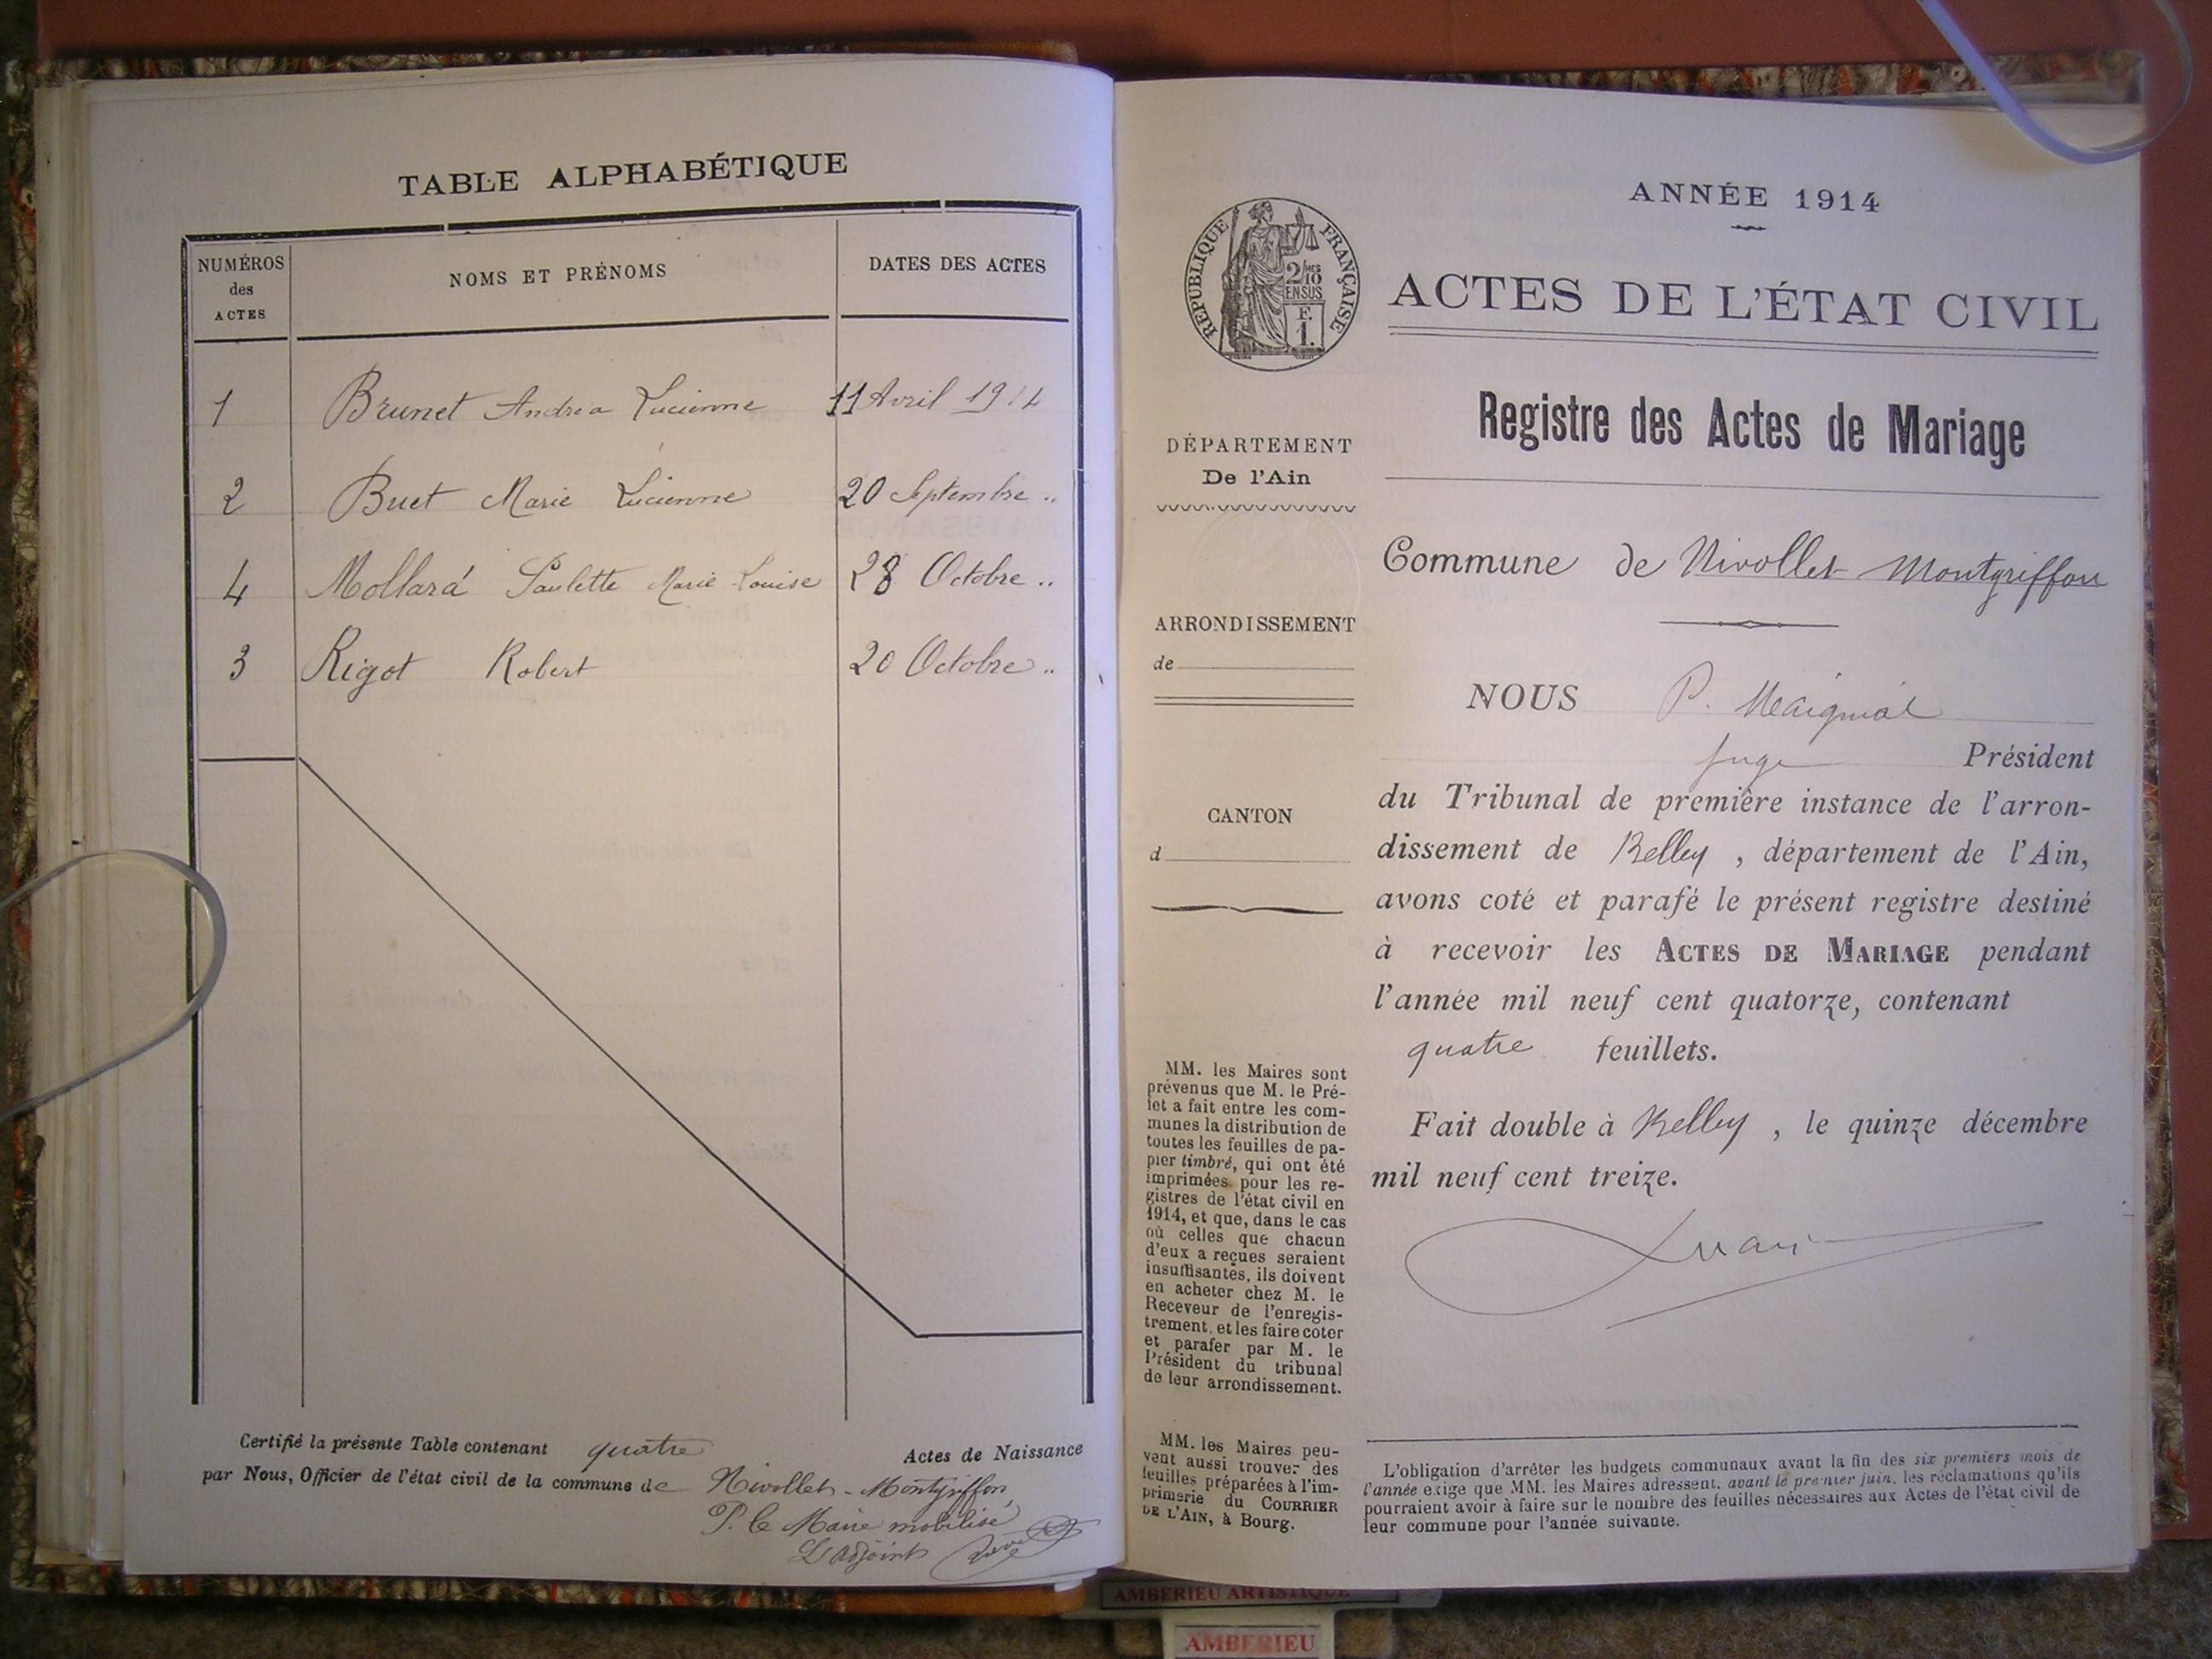 TABLE ALPHABÉTIQUE
NUMÉROS
des
ACTES
NOMS ET PRÉNOMS
DATES DES ACTES
1 Brunet Andréa Lucienne 11 Avril 1914
2 Buet Marie Lucienne 20 Septembre ..
4 Mollard Paulette Marie Louise 28 Octobre ..
3 Rigot Robert 20 Octobre ..
Certifié la présente Table contenant quatre Actes de Naissance
par Nous, Officier de l'état civil de la commune de Nivollet-Montgriffon
P. le Maire mobilisé
L'adjoint
ANNÉE 1914
RÉPUBLIQUE FRANÇAISE
2/10 MES
EN SUS
F.
1.
ACTES DE L'ÉTAT CIVIL
Registre des Actes de Mariage
DÉPARTEMENT
De l'Ain
ARRONDISSEMENT
de
CANTON
d
MM. les Maires sont
prévenus que M. le Pré-
fet a fait entre les com-
munes la distribution de
toutes les feuilles de pa-
pier timbré, qui ont été
imprimées pour les re-
gistres de l'état civil en
1914, et que, dans le cas
où celles que chacun
d'eux a reçues seraient
insuffisantes, ils doivent
en acheter chez M. le
Receveur de l'enregis-
trement, et les faire coter
et parafer par M. le
Président du tribunal
de leur arrondissement.
MM. les Maires peu-
vent aussi trouver des
feuilles préparées à l'im-
primerie du COURRIER
DE L'AIN, à Bourg.
Commune de Nivollet Montgriffon
NOUS P.
Juge Président
du Tribunal de première instance de l'arron-
dissement de Belley, département de l'Ain,
avons coté et parafé le présent registre destiné
à recevoir les ACTES DE MARIAGE pendant
l'année mil neuf cent quatorze, contenant
quatre feuillets.
Fait double à Belley, le quinze décembre
mil neuf cent treize.
L'obligation d'arrêter les budgets communaux avant la fin des six premiers mois de
l'année exige que MM. les Maires adressent, avant le premier juin, les réclamations qu'ils
pourraient avoir à faire sur le nombre des feuilles nécessaires aux Actes de l'état civil de
leur commune pour l'année suivante.
AMBERIEU ARTISTIQUE
AMBERIEU